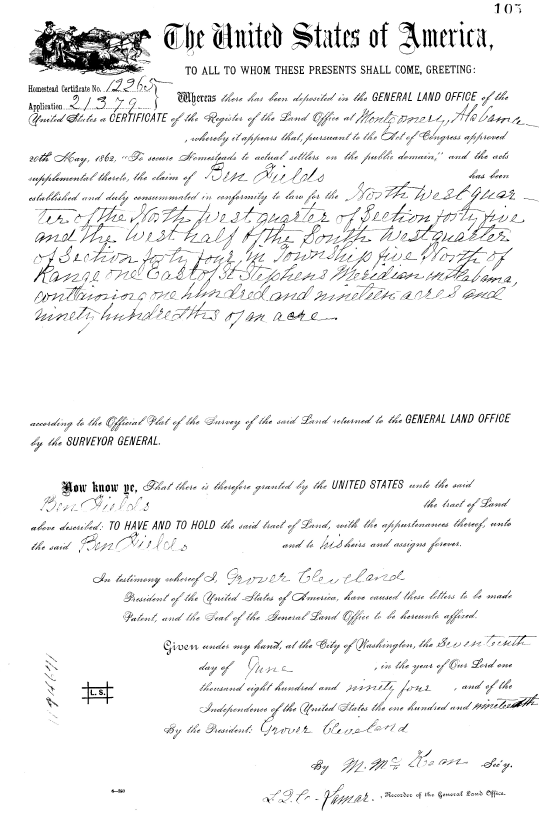 105
The United States of America,
TO ALL TO WHOM THESE PRESENTS SHALL COME, GREETING:
Homestead Certificate No. 12265
Application 21379
Whereas there has been deposited in the GENERAL LAND OFFICE of the
United States a CERTIFICATE of the Register of the Land Office at Montgomery, Alabama
, whereby it appears that, pursuant to the Act of Congress approved
20th May, 1862. "To secure Homesteads to actual settlers on the public domain," and the acts
supplemental thereto, the claim of Ben Fields has been
established and duly consummated in conformity to law for the North West quar-
ter of the North West quarter of Section forty five
and the West half of the South West quarter
of Section forty four, in Township five North of
Range one East of St Stephens Meridian in Alabama,
containing one hundred and nineteen acres and
ninety hundredths of an acre
according to the Official Plat of the Survey of the said Land returned to the GENERAL LAND OFFICE
by the SURVEYOR GENERAL.
Now know ye, That there is therefore granted by the UNITED STATES unto the said
Ben Fields the tract of Land
above described: TO HAVE AND TO HOLD the said tract of Land, with the appurtenances thereof, unto
the said Ben Fields and to his heirs and assigns forever.
In testimony whereof I, Grover Cleveland
President of the United States of America, have caused these letters to be made
Patent, and the Seal of the General Land Office to be hereunto affixed.
Given under my hand, at the City of Washington, the Seventeenth
day of June , in the year of Our Lord one
thousand eight hundred and ninety four , and of the
L. S.
Independence of the United States the one hundred and nineteenth
By the President: Grover Cleveland
By M. McKean Sec'y.
Lamar. , Recorder of the General Land Office.